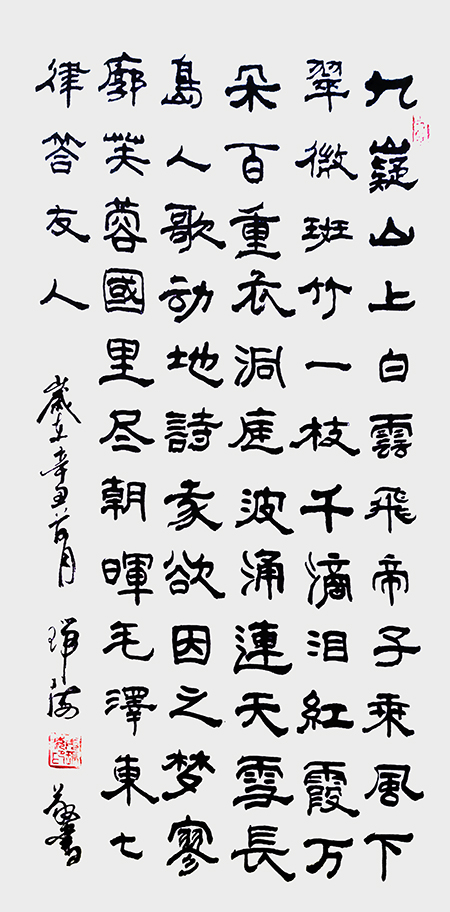 九嶷山上白雲飛帝子乘風下
翠微班竹一枝千滴泪紅霞万
朵百重衣洞庭波涌連天雪長
島人歌动地詩我欲因之梦寥
廓芙蓉國里尽朝暉毛澤東七
律答友人
歲在辛丑月